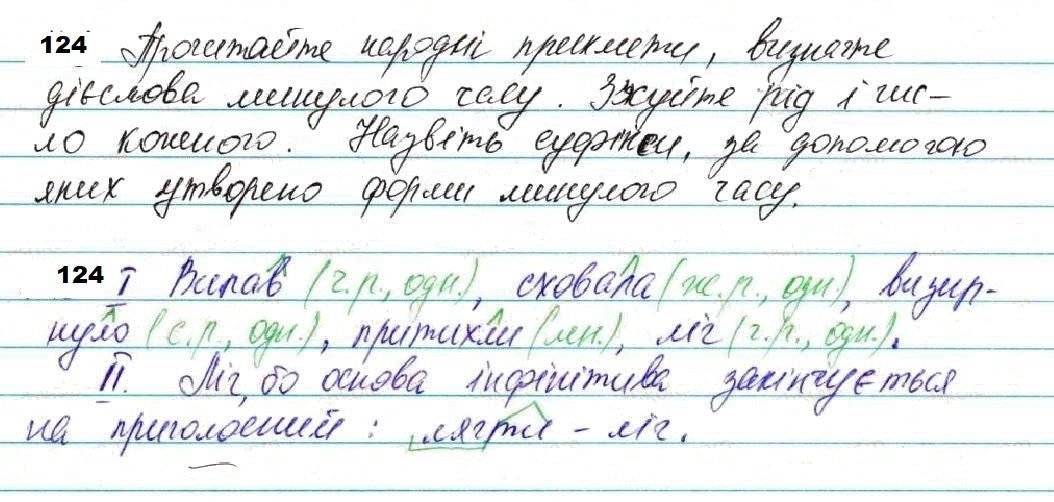 124 Прочитайте народні прикмети, визначте
дієслова минулого часу. З'ясуйте рід і чис-
ло кожного. Назвіть суфікси, за допомогою
яких утворено форми минулого часу.
124 I Випав (ч.р., одн.), сховала (ж.р., одн.), визир-
нуло (с.р., одн.), притихли (мн.), ліг (ч.р., одн.).
II. Ліг, бо основа інфінітива закінчується
на приголосний : лягти – ліг.